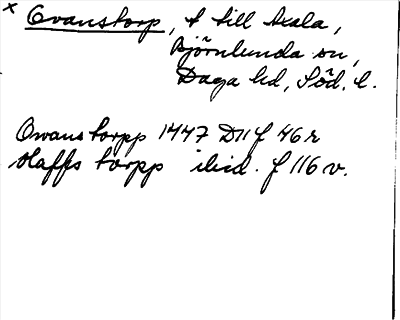 × Ovanstorp, t till Skala,
Björnlunda sn,
Daga hd, Söd. l.
Owanstorpp 1447 D11 f 46 r
olaffs torpp ibid. f 116 v.